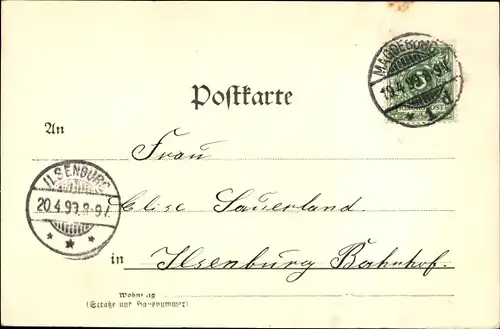 MAGDEBURG
19.4.99.8-9V.
Postkarte
An
Frau
ILSENBURG
20.4.99.8-9V.
Elise Sauerland.
in Ilsenburg Bahnhof.
Wohnung
(Straße und Hausnummer)